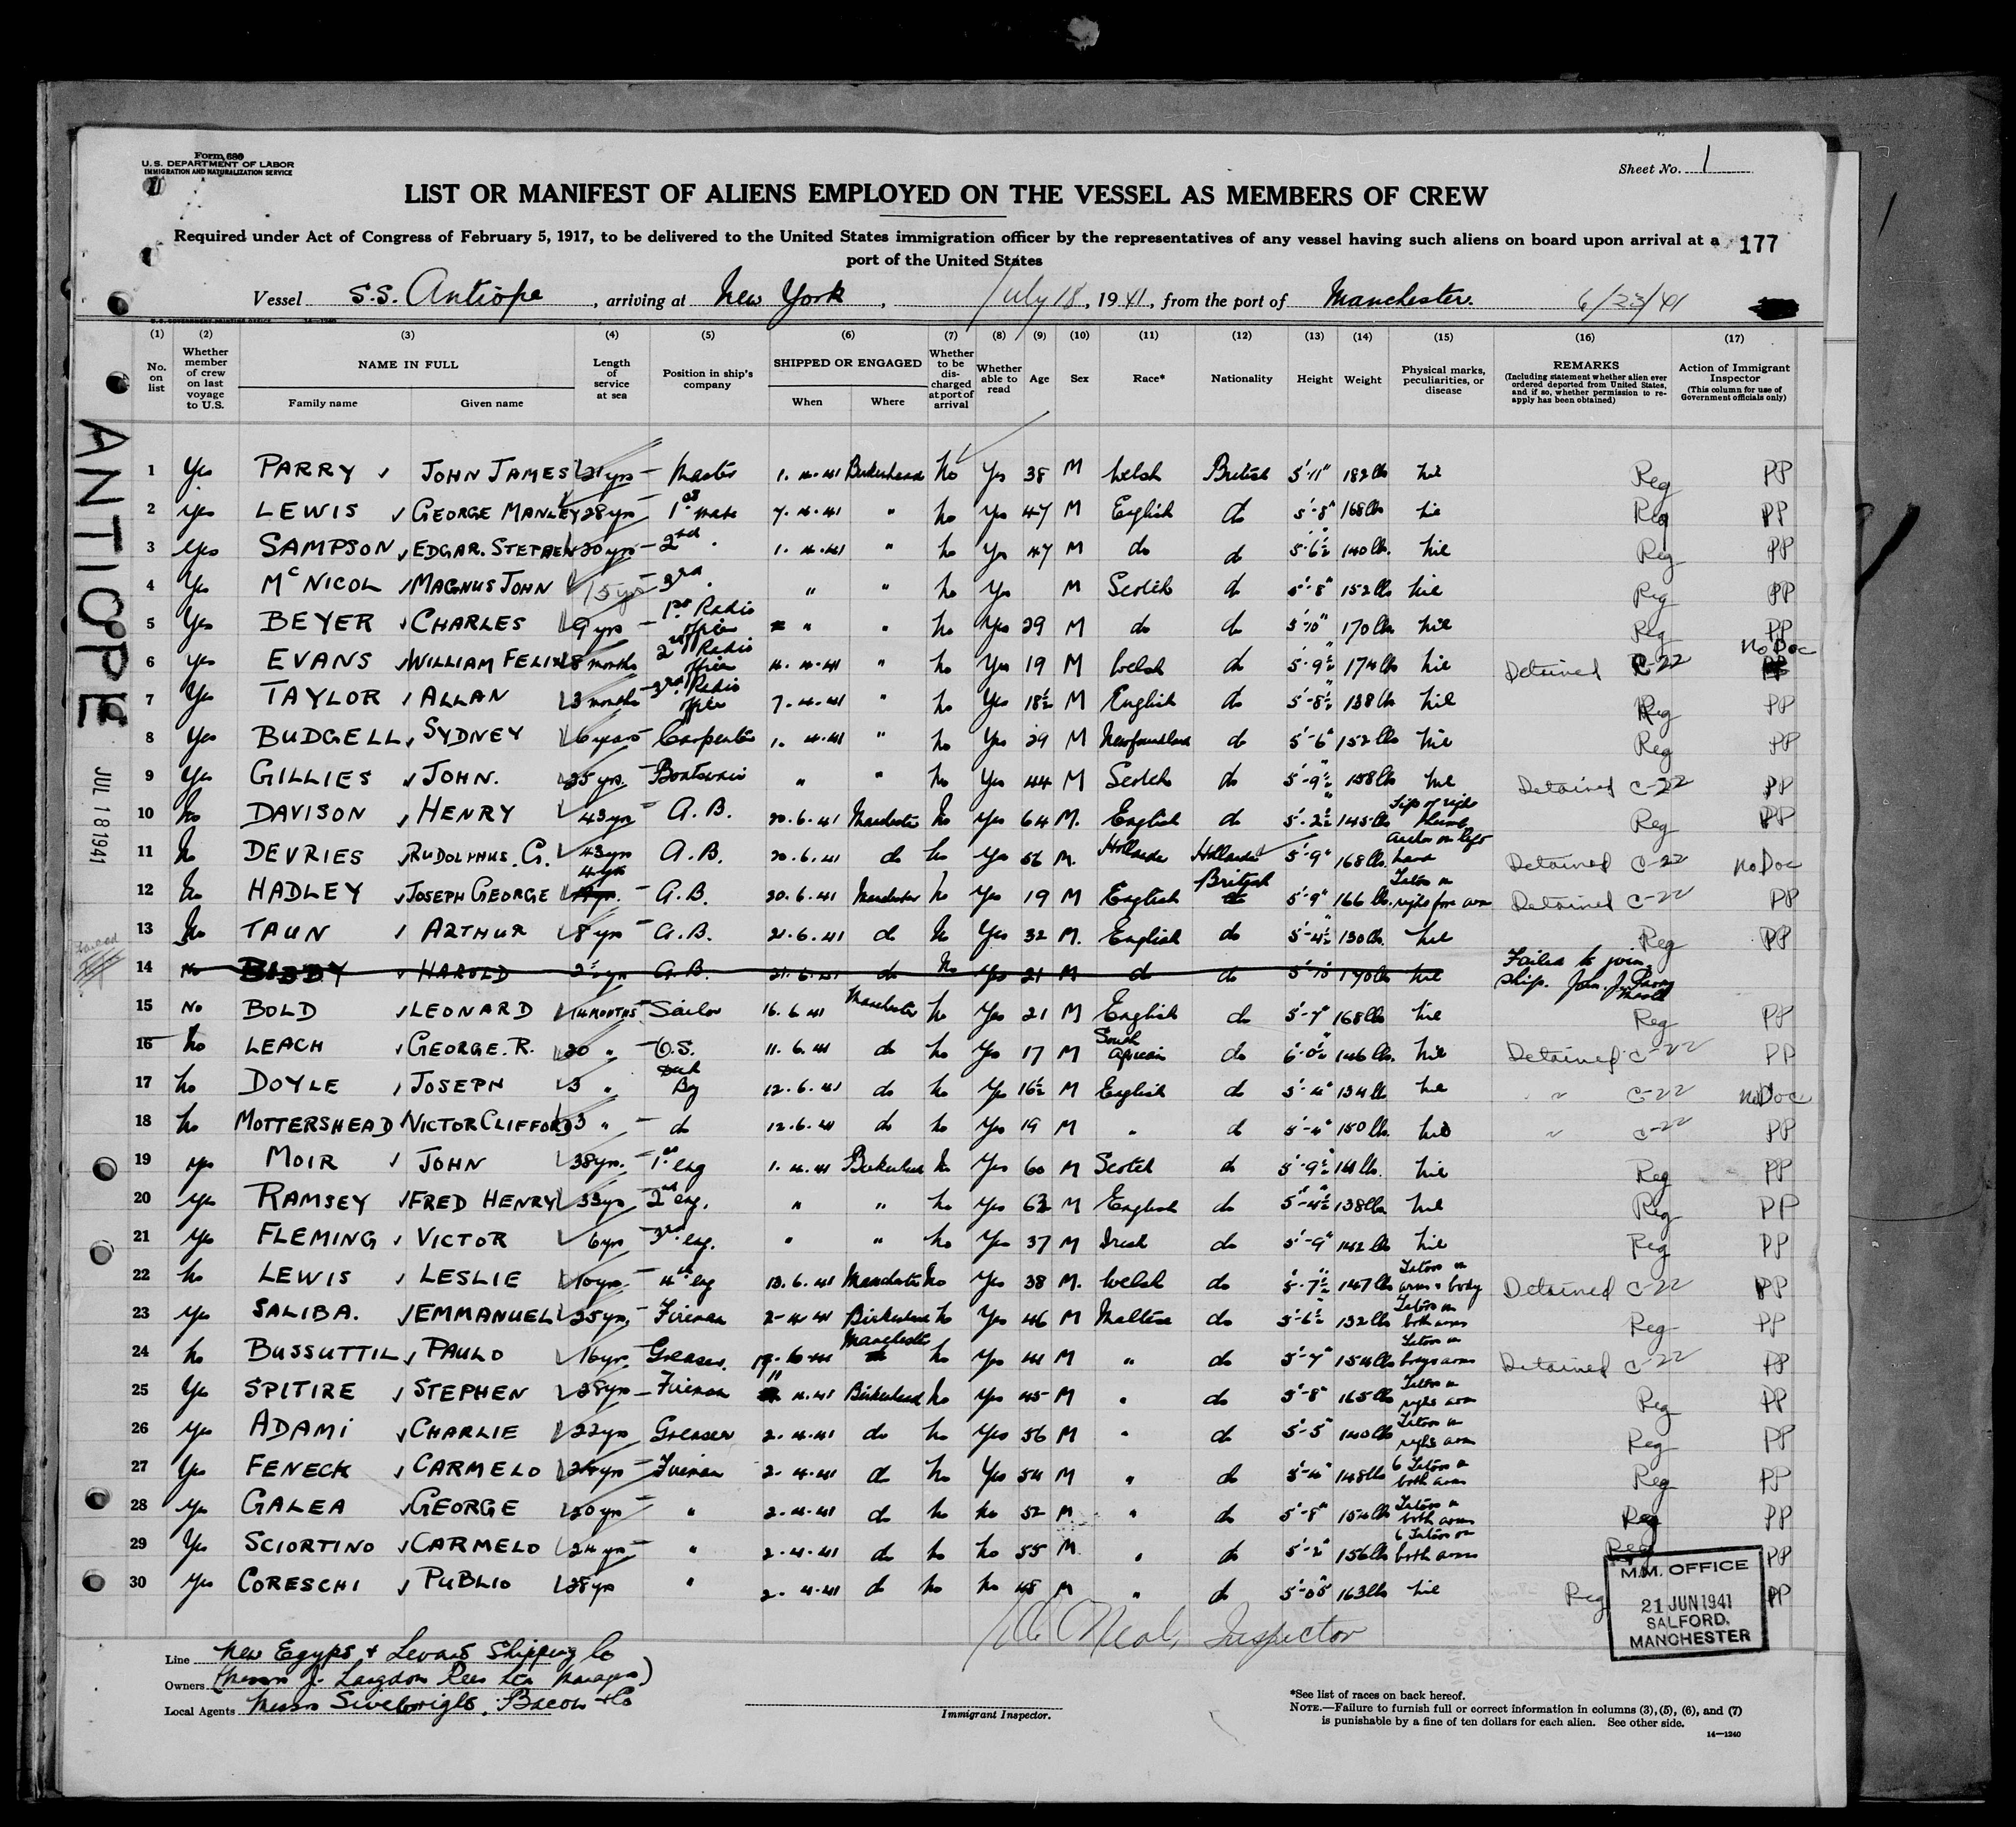 Form 680
U.S. DEPARTMENT OF LABOR
IMMIGRATION AND NATURALIZATION SERVICE
Sheet No. 1
LIST OR MANIFEST OF ALIENS EMPLOYED ON THE VESSEL AS MEMBERS OF CREW
Required under Act of Congress of February 5, 1917, to be delivered to the United States immigration officer by the representatives of any vessel having such aliens on board upon arrival at a
port of the United States
177
Vessel S.S. Antiope, arriving at New York, July 18, 1941, from the port of Manchester. 6/23/41
(1) (2) (3) (4) (5) (6) (7) (8) (9) (10) (11) (12) (13) (14) (15) (16) (17)
No. on list
Whether member of crew on last voyage to U.S.
NAME IN FULL
Family name Given name
Length of service at sea
Position in ship's company
SHIPPED OR ENGAGED
When Where
Whether to be discharged at port of arrival
Whether able to read
Age
Sex
Race*
Nationality
Height
Weight
Physical marks, peculiarities, or disease
REMARKS
(Including statement whether alien ever ordered deported from United States, and if so, whether permission to reapply has been obtained)
Action of Immigrant Inspector
(This column for use of Government officials only)
ANTIOPE
JUL 18 1941
1 Yes PARRY JOHN JAMES 21 yrs Master 1.4.41 Birkenhead No Yes 38 M Welsh British 5'-11" 182 lbs Nil Reg PP
2 Yes LEWIS GEORGE MANLEY 28 yrs 1st Mate 7.4.41 " No Yes 47 M English do 5'-8" 168 lbs Nil Reg PP
3 Yes SAMPSON EDGAR. STEPHEN 30 yrs 2nd " 1.4.41 " No Yes 47 M do do 5'-6½" 140 lb. Nil Reg PP
4 Yes McNICOL MAGNUS JOHN 15 yrs 3rd " " " No Yes M Scotch do 5'-8" 152 lbs Nil Reg PP
5 Yes BEYER CHARLES 9 yrs 1st Radio officer " " No Yes 29 M do do 5'-10" 170 lbs Nil Reg PP
6 Yes EVANS WILLIAM FELIX 8 months 2nd Radio officer 4.4.41 " No Yes 19 M Welsh do 5'-9½" 174 lbs Nil Detained C-22 No Doc
7 Yes TAYLOR ALLAN 3 months 3rd Radio officer 7.4.41 " No Yes 18½ M English do 5'-8½" 138 lbs Nil Reg PP
8 Yes BUDGELL SYDNEY 6 years Carpenter 1.4.41 " No Yes 29 M Newfoundland do 5'-6" 152 lbs Nil Reg PP
9 Yes GILLIES JOHN. 25 yrs. Boatswain " " No Yes 44 M Scotch do 5'-9½" 158 lbs Nil Detained C-22 PP
10 No DAVISON HENRY 43 yrs A.B. 20.6.41 Manchester No Yes 64 M. English do 5'-2½" 145 lbs Tip of right thumb Reg PP
11 No DEVRIES RUDOLPHUS. G. 43 yrs A.B. 20.6.41 do No Yes 56 M. Hollander Hollander 5'-9" 168 lbs. Anchor on left hand Detained C-22 No Doc
12 No HADLEY JOSEPH GEORGE 4 yrs A.B. 20.6.41 Manchester No Yes 19 M English British 5'-9" 166 lbs. Tatoo on right fore arm Detained C-22 PP
13 No TAUN ARTHUR 8 yrs A.B. 21.6.41 do No Yes 32 M. English do 5'-4½" 130 lbs. Nil Reg PP
14 No HAROLD 2½ yrs A.B. 21.6.41 do No Yes 21 M do do 5'-10" 170 lbs Nil Failed to join ship. John. J. Parry Master
15 No BOLD LEONARD 14 MONTHS Sailor 16.6.41 Manchester No Yes 21 M English do 5'-7" 168 lbs Nil Reg PP
16 No LEACH GEORGE. R. 20 " O.S. 11.6.41 do No Yes 17 M South African do 6'-0½" 146 lbs. Nil Detained C-22 PP
17 No DOYLE JOSEPH 3 " Deck Boy 12.6.41 do No Yes 16½ M English do 5'-4" 134 lb Nil " C-22 No Doc
18 No MOTTERSHEAD VICTOR CLIFFORD 3 " do 12.6.41 do No Yes 19 M " do 5'-4" 150 lbs. Nil " C-22 PP
19 Yes MOIR JOHN 38 yrs. 1st eng 1.4.41 Birkenhead No Yes 60 M Scotch do 5'-9½" 161 lbs. Nil Reg PP
20 Yes RAMSEY FRED HENRY 33 yrs 2nd eng. " " No Yes 63 M English do 5'-4½" 138 lbs Nil Reg PP
21 Yes FLEMING VICTOR 6 yrs 3rd eng. " " No Yes 37 M Irish do 5'-9" 142 lbs Nil Reg PP
22 No LEWIS LESLIE 10 yrs 4th eng 13.6.41 Manchester No Yes 38 M. Welsh do 5'-7½" 147 lbs Tatoos on arms & body Detained C-22 PP
23 Yes SALIBA. EMMANUEL 25 yrs. Fireman 2-4-41 Birkenhead No Yes 46 M Maltese do 5'-6½" 132 lbs Tatoos on both arms Reg PP
24 No BUSSUTTIL PAULO 16 yrs. Greaser 19.6.41 Manchester No Yes 41 M " do 5'-7" 154 lbs Tatoos on arms Detained C-22 PP
25 Yes SPITIRE STEPHEN 28 yrs Fireman 4.41 Birkenhead No Yes 45 M " do 5'-8" 165 lbs Tatoo on right arm Reg PP
26 Yes ADAMI CHARLIE 22 yrs Greaser 2.4.41 do No Yes 56 M " do 5'-5" 140 lbs Tatoo on right arm Reg PP
27 Yes FENECK CARMELO 24 yrs Fireman 2.4.41 do No Yes 54 M " do 5'-4" 148 lbs 6 Tatoos on both arms Reg PP
28 Yes GALEA GEORGE 20 yrs " 2.4.41 do No No 52 M " do 5'-8" 154 lbs Tatoos on both arms Reg PP
29 Yes SCIORTINO CARMELO 24 yrs " 2.4.41 do No No 55 M " do 5'-2" 156 lbs 6 Tatoos on both arms Reg PP
30 Yes CORESCHI PUBLIO 28 yrs " 2.4.41 do No No 48 M " do 5'-0½" 163 lbs Nil Reg PP
M.M. OFFICE
21 JUN 1941
SALFORD.
MANCHESTER
Neal, Inspector
Line New Egypt & Levant Shipping Co
Owners (Messrs J. Langdon Rees Ltd Managers)
Local Agents Messrs Sivewright, Bacon & Co
Immigrant Inspector.
*See list of races on back hereof.
NOTE.—Failure to furnish full or correct information in columns (3), (5), (6), and (7)
is punishable by a fine of ten dollars for each alien. See other side.
14—1240